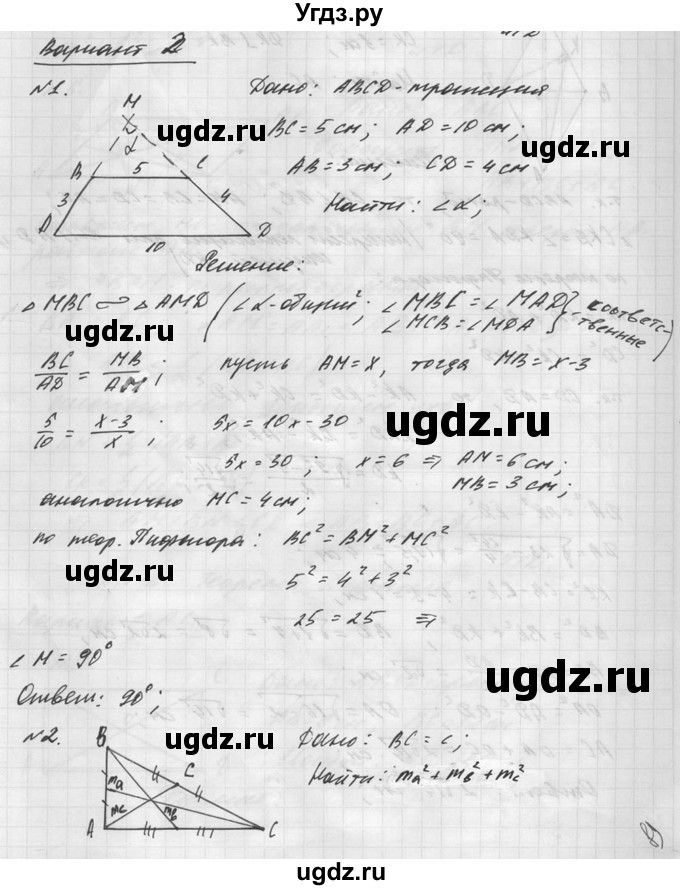 Угдз.ру
Вариант 2
№1.
Дано: ABCD - трапеция
BC = 5 см; AD = 10 см;
AB = 3 см; CD = 4 см
Найти: ∠α;
M
α
B 5 C
3 4
A D
10
ugdz.ru
ugdz.ru
Решение:
△ MBC ∽ △ AMD (∠α - общий; ∠MBC = ∠MAD
∠MCB = ∠MDA} соответственные)
ugdz.ru
BC/AD = MB/AM; пусть AM = x, тогда MB = x-3
ugdz.ru
5/10 = x-3/x; 5x = 10x - 30
5x = 30; x = 6 ⇒ AM = 6 см;
MB = 3 см;
аналогично MC = 4 см;
ugdz.ru
по теор. Пифагора: BC² = BM² + MC²
ugdz.ru
5² = 4² + 3²
25 = 25 ⇒
∠M = 90°
ugdz.ru
Ответ: 90°;
ugdz.ru
№2. Дано: BC = c;
Найти: mₐ² + m_b² + m_c²
B
C
mₐ
m_c
m_b
A C
ugdz.ru
ugdz.ru